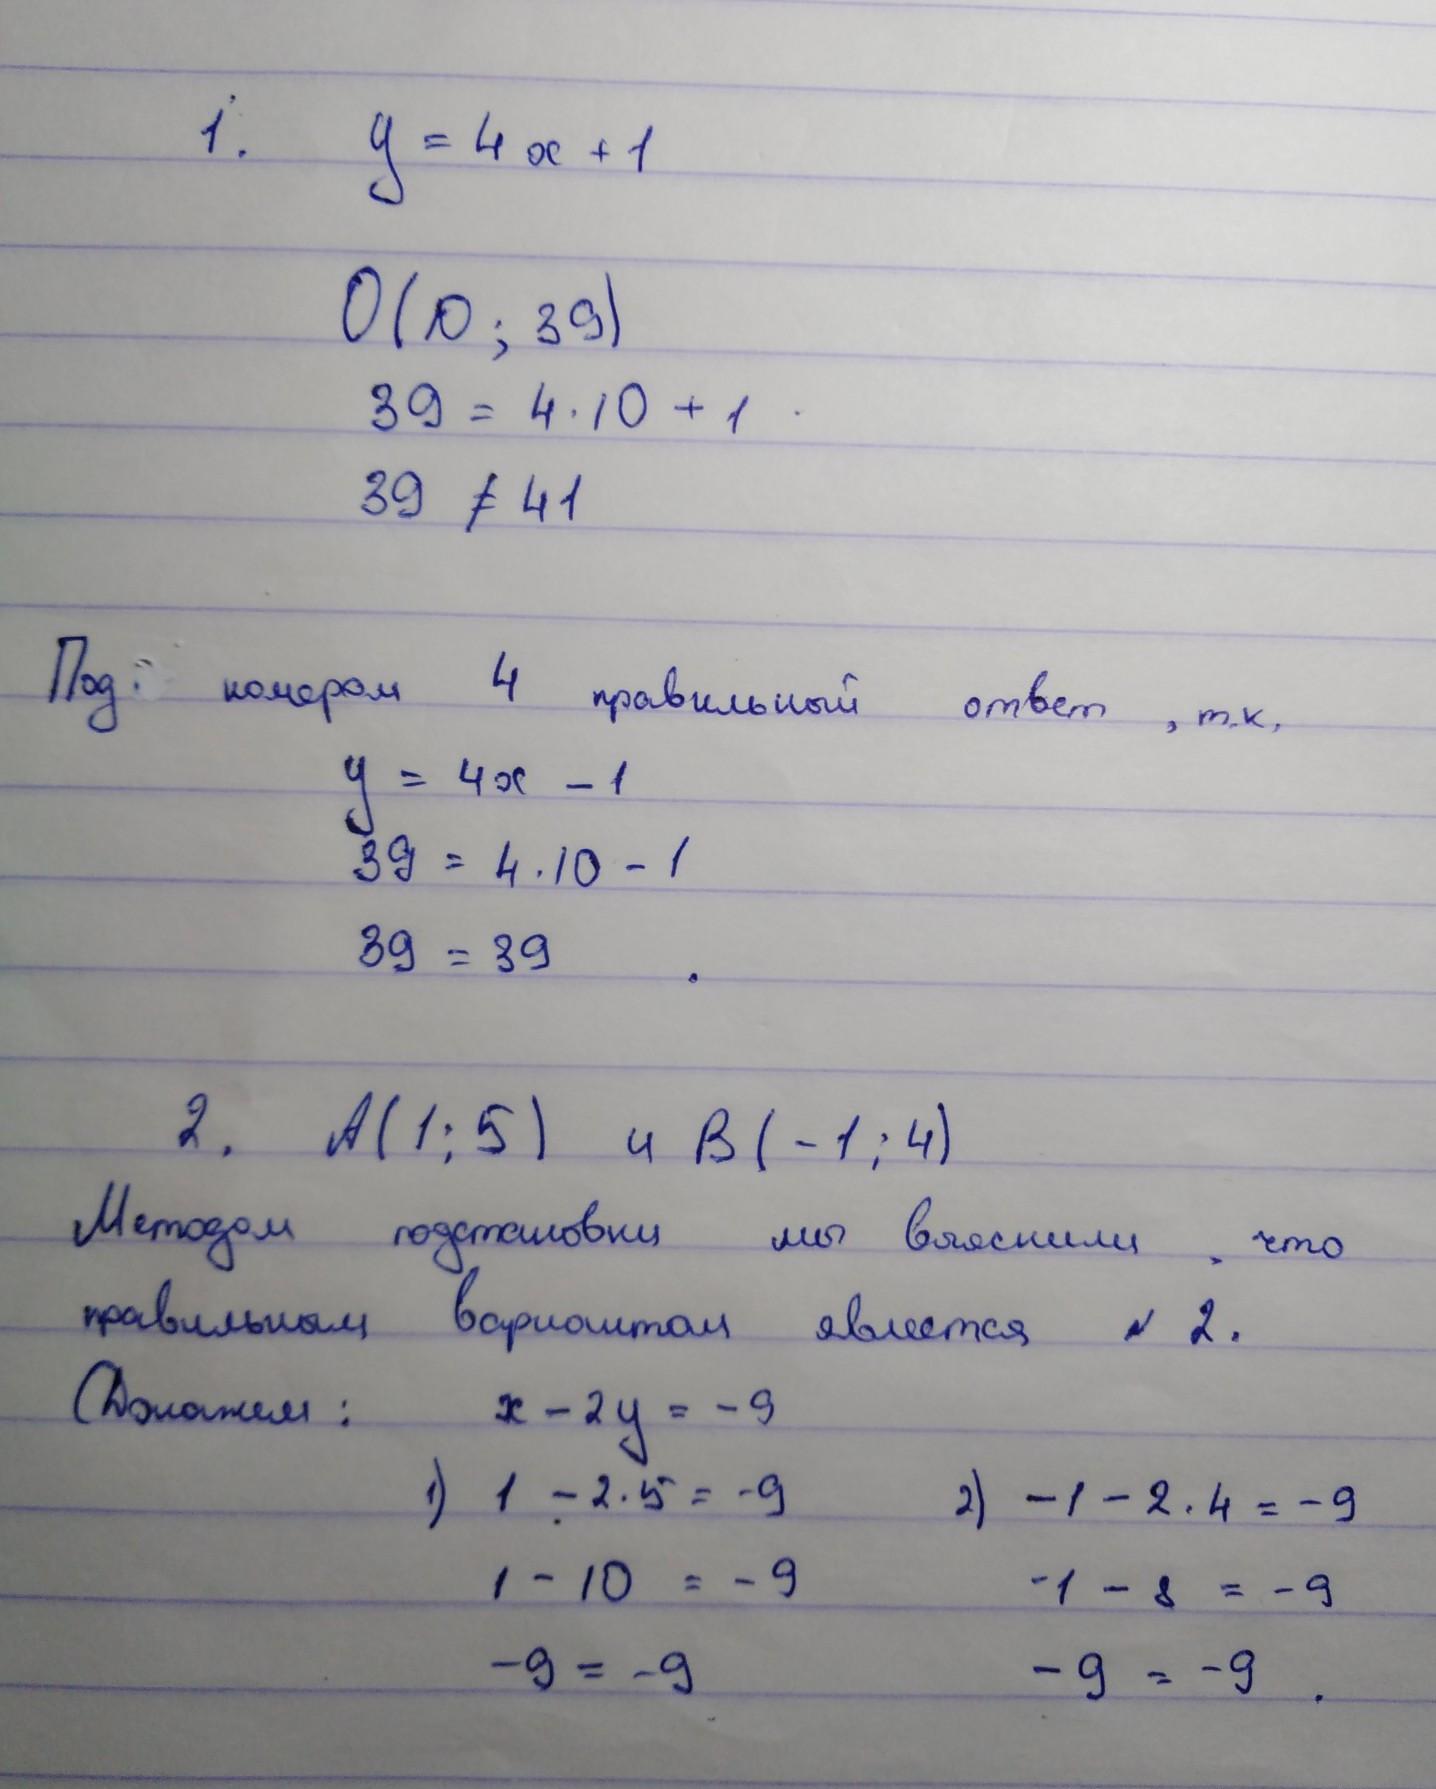 1. y = 4x + 1
O(10; 39)
39 = 4·10 + 1
39 ≠ 41
Под номером 4 правильный ответ, т.к.
y = 4x - 1
39 = 4·10 - 1
39 = 39 .
2. A(1; 5) и B(-1; 4)
Методом подстановки мы выяснили, что
правильным вариантом является № 2.
Докажем: x - 2y = -9
1) 1 - 2·5 = -9 2) -1 - 2·4 = -9
1 - 10 = -9 -1 - 8 = -9
-9 = -9 -9 = -9 .